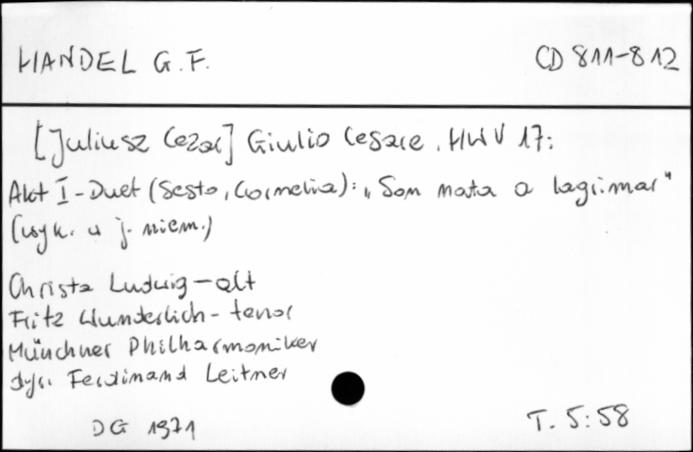 HANDEL G.F.
CD 811-812
[Juliusz Cezar] Giulio Cesare, HWV 17:
Akt I - Duet (Sesto, Cornelia): „Son nata a lagrimar"
(wyk. w j. niem.)
Christa Ludwig - alt
Fritz Wunderlich - tenor
Münchner Philharmoniker
dyr. Ferdinand Leitner
DG 1971
T. 5:58